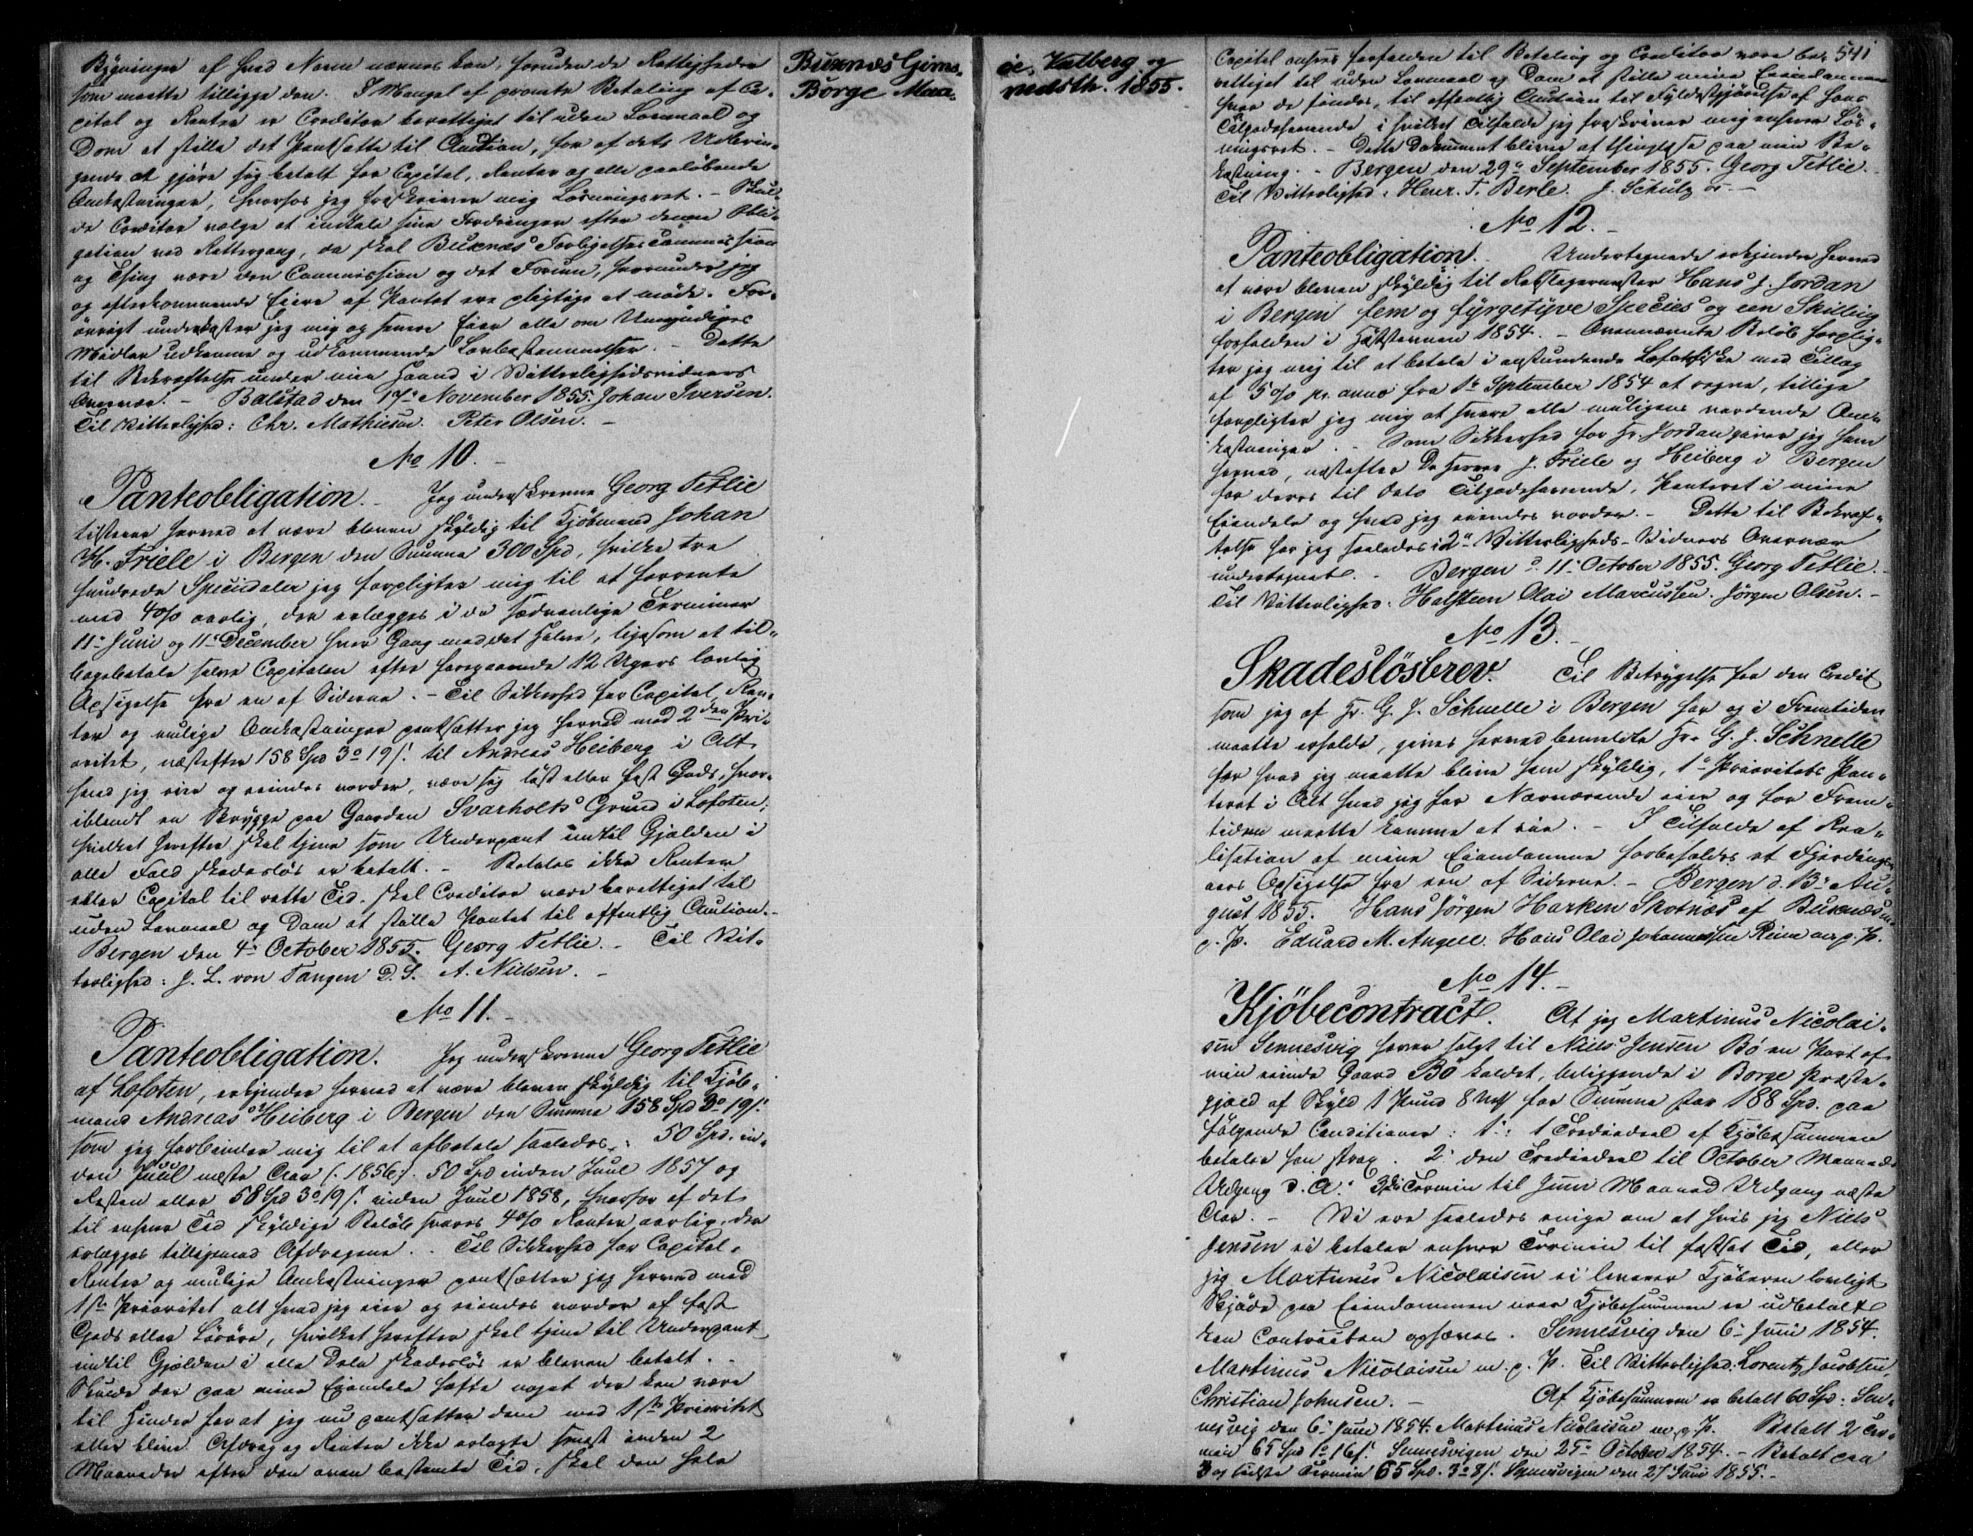 Bygninger af hvad Navn nævnes kan, foruden de Rettigheder
som maatte tilligge den. I Mangel af prompte Betaling af Ca-
pital og Renter er Creditor berettiget til uden Lovmaal og
Dom at stille det Pantsatte til Auction, for af dets Udbrin-
gende at gjøre sig betalt for Capital, Renter og alle paaløbende
Omkostninger, hvorfor jeg fraskriver mig Løsningsret. - Skul-
de Creditor vælge at indtale sine Fordringer efter denne Obli-
gation ved Rettergang, da skal Buxnæs Forligelsescommission
og Thing være den Commission og det Forum, hvorunder jeg
og efterkommende Eiere af Pantet ere pligtige at møde. For-
øvrigt underkaster jeg mig og senere Eier alle om Umyndiges
Midler udkomne og udkommende Lovbestemmelser. - Dette
til Bekræftelse under min Haand i Vitterlighedsvidners
Overvær. - Balstad den 17de November 1855. Johan Iversen.
Til Vitterlighed: Chr. Mathiesen. Peter Olsen. -
No 10. -
Panteobligation. - Jeg underskrevne Georg Tetlie
tilstaaer herved at være bleven skyldig til Kjøbmand Johan
H. Friele i Bergen den Summa 300 Spd, hvilke tre
hundrede Speciedaler jeg forpligter mig til at forrente
med 4% aarlig, der erlægges i de sædvanlige Terminer
11te Juni og 11te December hver Gang med det Halve, ligesom at til-
bagebetale selve Capitalen efter foregaaende 12 Ugers lovlig
Opsigelse fra en af Siderne. - Til Sikkerhed for Capital, Ren-
ter og mulige Omkostninger pantsætter jeg herved med 2den Pri-
oritet, næstefter 158 Spd 3 19 s. til Andreas Heiberg i Alt
hvad jeg eier og eiendes vorder, være sig løst eller fast Gods, hvor-
iblandt en Brygge paa Gaarden Svarholts Grund i Lofoten,
hvilket herefter skal tjene som Underpant indtil Gjælden i
alle Fald skadesløs er betalt. - Betales ikke Renter
eller Capital til rette Tid, skal Creditor være berettiget til
uden Lovmaal og Dom at stille Pantet til offentlig Auction. -
Bergen den 4de October 1855. Georg Tetlie. - Til Vit-
terlighed: J. L. von Tangen D. S. A. Nielsen. -
No 11. -
Panteobligation. Jeg underskrevne Georg Tetlie
af Lofoten, erkjender herved at være bleven skyldig til Kjøb-
mand Andreas Heiberg i Bergen den Summa 158 Spd 3 19 s.
som jeg forbinder mig til at afbetale saaledes: 50 Spd. in-
den Juul næste Aar (: 1856 :) 50 Spd inden Juul 1857 og
Resten eller 58 Spd 3 19 s. inden Juul 1858, hvorfor af det
til enhver Tid skyldige Beløb svares 4% Renter aarlig, der
erlægges tilligemed Afdragene. - Til Sikkerhed for Capital,
Renter og mulige Omkostninger pantsætter jeg herved med
1ste Prioritet alt hvad jeg eier og eiendes vorder af fast
Gods eller Løsøre, hvilket herefter skal tjene til Underpant
indtil Gjælden i alle Dele skadesløs er bleven betalt. -
Skulde der paa mine Eiendele hæfte noget der kan være
til Hinder for at jeg nu pantsætter dem med 1ste Prioritet
eller blive Afdrag og Renter ikke erlagte senest inden 2
Maaneder efter den oven bestemte Tid, skal den hele
Buxnæs Gims-
Borge Maa-
øe, Valberg og
nedsth. 1855.
541
Capital ansees forfalden til Betaling og Creditor være be-
rettiget til uden Lovmaal og Dom at stille mine Eiendomme
hvor de findes, til offentlig Auction til Fyldestgjørelse af hans
Tilgodehavende i hvilket Tilfælde jeg fraskriver mig enhver Løs-
ningsret. - Dette Document bliver at thinglæse paa min Be-
kostning. - Bergen den 29de September 1855. Georg Tetlie. -
Til Vitterlighed: Henr. T. Berle. J. Schultz
No 12. -
Panteobligation. Undertegnede erkjender herved
at være bleven skyldig til Rebslagermester Hans J. Jordan
i Bergen fem og fyrgetyve Species og een Skilling
forfalden i Høststevnen 1854. - Ovennævnte Beløb forplig-
ter jeg mig til at betale i anstundende med Tillæg
af 5% pr. anno fra 1te September 1854 at regne, tillige
forpligter jeg mig at svare alle muligens vordende Om-
kostninger. - Som Sikkerhed for Hr Jordan giver jeg ham
herved, næstefter De Herrer J. Friele og Heiberg i Bergen
for deres til Dato Tilgodehavende, Panteret i mine
Eiendele og hvad jeg eiendes vorder. - Dette til Bekræf-
telse har jeg saaledes i 2de Vitterligheds-Vidners Overvær
undertegnet. - Bergen d. 11te October 1855. Georg Tetlie. -
Til Vitterlighed: Halsteen Olai Marcussen. Jørgen Olsen. -
No 13. -
Skadesløsbrev. Til Betryggelse for den Credit
som jeg af Hr. G. J. Schnelle i Bergen har og i Fremtiden
maatte erholde, gives herved bemeldte Hr. G. J. Schnelle
for hvad jeg maatte blive ham skyldig, 1ste Prioritets Pan-
teret i Alt hvad jeg for Nærværende eier og for Frem-
tiden maatte komme at eie. - I Tilfælde af Rea-
lisation af mine Eiendomme forbeholdes et Fjerdings-
aars Opsigelse fra een af Siderne. - Bergen d. 8de Au-
gust 1855. Hans Jörgen Harken Skotnæs af Buxnæs m.
p. P. Eduard M. Angell. Hans Olai Johannessen Reine m. p. P.
No 14. -
Kjöbecontract. At jeg Martinus Nicolai-
sen Sennesvig haver solgt til Niels Jensen Bö en Part af
min eiende Gaard Bö kaldet, beliggende i Borge Præste-
gjæld af Skyld 1 Pund 8 Mk for Summa stor 188 Spd. paa
følgende Conditioner: 1: 1 Trediedeel af Kjøbesummen
betaler han strax. 2: den Trediedeel til October Maaneds
Udgang d. A. 3die Termin til Juni Maaned Udgang næste
Aar. - Vi ere saaledes enige om at hvis jeg Niels
Jensen ei betaler enhver Termin til fastsat Tid, eller
jeg Martinus Nicolaisen ei leverer Kjøberen lovligt
Skjøde paa Eiendommen naar Kjøbesummen er udbetalt
kan Contracten ophæves. Sennesvig den 6te Juni 1854.
Martinus Nicolaisen m. p. P. Til Vitterlighed: Lorentz Jacobsen,
Christian Johnsen. - Af Kjøbesummen er betalt 60 Spd: Sen-
nesvig den 6te Juni 1854. Martinus Nicolaisen m. p. P. Betalt 2 Ter-
min 65 Spd 1 16 s. Sennesvigen den 25de October 1854. - Betalt paa
3 og sidste Termin 65 Spd. 3 8 s. Sennesvigen den 27 Juni 1855. -